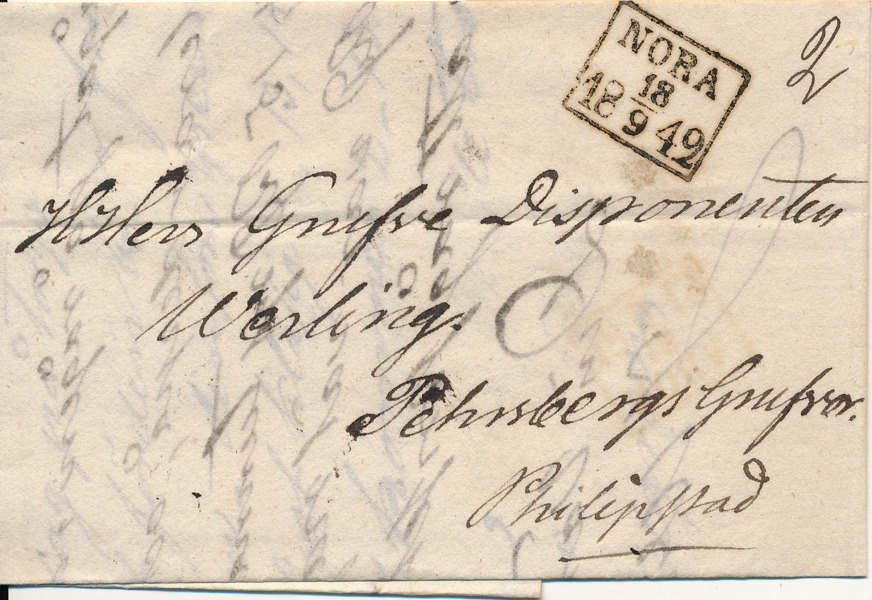 NORA
18
18 9 42
2
HHerr Grufve Disponenten
Werling.
Pehrsbergs Grufvor.
Philipstad